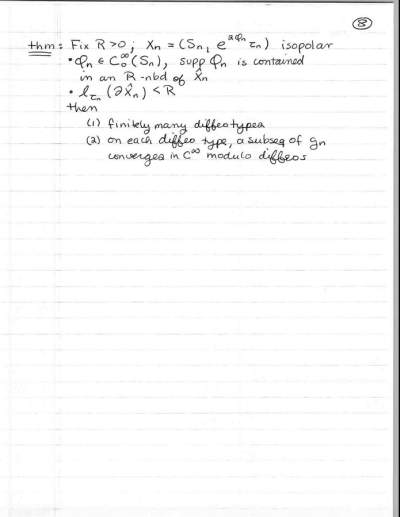 8
thm: Fix R>0; Xn = (Sn, e^{2φn} τn) isopolar
• φn ∈ C₀^∞(Sn), supp φn is contained
in an R-nbd of X̂n
• ℓ_{τn}(∂X̂n) < R
then
(1) finitely many diffeo types
(2) on each diffeo type, a subseq of gn
converges in C^∞ modulo diffeos